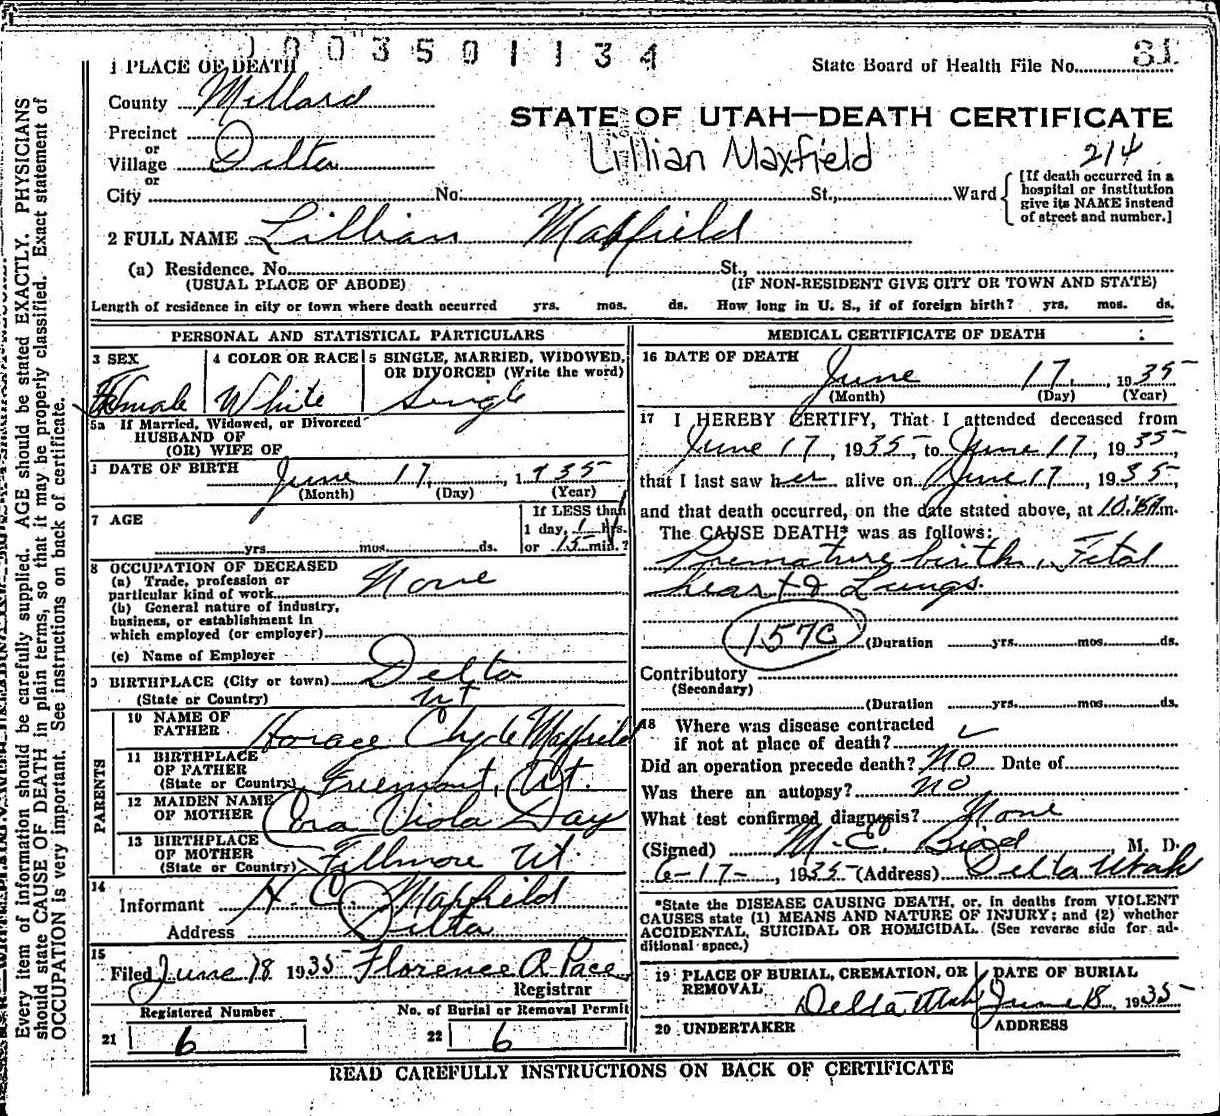 1003501134
1 PLACE OF DEATH
State Board of Health File No. 31
County Millard
STATE OF UTAH—DEATH CERTIFICATE
Precinct
or
Village Delta
Lillian Maxfield
214
or
City No. St., Ward
[If death occurred in a
hospital or institution
give its NAME instead
of street and number.]
2 FULL NAME Lillian Maxfield
(a) Residence. No. St.,
(USUAL PLACE OF ABODE) (IF NON-RESIDENT GIVE CITY OR TOWN AND STATE)
Length of residence in city or town where death occurred yrs. mos. ds. How long in U. S., if of foreign birth? yrs. mos. ds.
PERSONAL AND STATISTICAL PARTICULARS
3 SEX
Female
4 COLOR OR RACE
White
5 SINGLE, MARRIED, WIDOWED,
OR DIVORCED (Write the word)
Single
5a If Married, Widowed, or Divorced
HUSBAND OF
(OR) WIFE OF
DATE OF BIRTH June 17, 1935
(Month) (Day) (Year)
7 AGE
yrs. mos. ds.
If LESS than
1 day, 1 hrs.
or 15 min.?
8 OCCUPATION OF DECEASED
(a) Trade, profession or
particular kind of work None
(b) General nature of industry,
business, or establishment in
which employed (or employer)
(c) Name of Employer
BIRTHPLACE (City or town) Delta
(State or Country) Ut
PARENTS
10 NAME OF
FATHER Horace Clyde Maxfield
11 BIRTHPLACE
OF FATHER
(State or Country) Fremont, Ut.
12 MAIDEN NAME
OF MOTHER Cora Viola Day
13 BIRTHPLACE
OF MOTHER
(State or Country) Fillmore Ut.
14
Informant H. C. Maxfield
Address Delta
15
Filed June 18 1935 Florence A Pace
Registrar
Registered Number
21 6
No. of Burial or Removal Permit
22 6
MEDICAL CERTIFICATE OF DEATH
16 DATE OF DEATH
June 17, 1935
(Month) (Day) (Year)
17 I HEREBY CERTIFY, That I attended deceased from
June 17, 1935, to June 17, 1935,
that I last saw her alive on June 17, 1935,
and that death occurred, on the date stated above, at m.
The CAUSE DEATH* was as follows:
Premature birth, Fetal
heart & Lungs.
157C (Duration yrs. mos. ds.
Contributory
(Secondary)
(Duration yrs. mos. ds.
18 Where was disease contracted
if not at place of death? ✓
Did an operation precede death? No Date of
Was there an autopsy? No
What test confirmed diagnosis? None
(Signed) M. E. Bird, M. D.
6-17-, 1935 (Address) Delta Utah
*State the DISEASE CAUSING DEATH, or. in deaths from VIOLENT
CAUSES state (1) MEANS AND NATURE OF INJURY; and (2) whether
ACCIDENTAL, SUICIDAL OR HOMICIDAL. (See reverse side for ad-
ditional space.)
19 PLACE OF BURIAL, CREMATION, OR
REMOVAL
Delta Utah
DATE OF BURIAL
June 18, 1935
20 UNDERTAKER
ADDRESS
READ CAREFULLY INSTRUCTIONS ON BACK OF CERTIFICATE
Every item of information should be carefully supplied. AGE should be stated EXACTLY. PHYSICIANS
should state CAUSE OF DEATH in plain terms, so that it may be properly classified. Exact statement of
OCCUPATION is very important. See instructions on back of certificate.